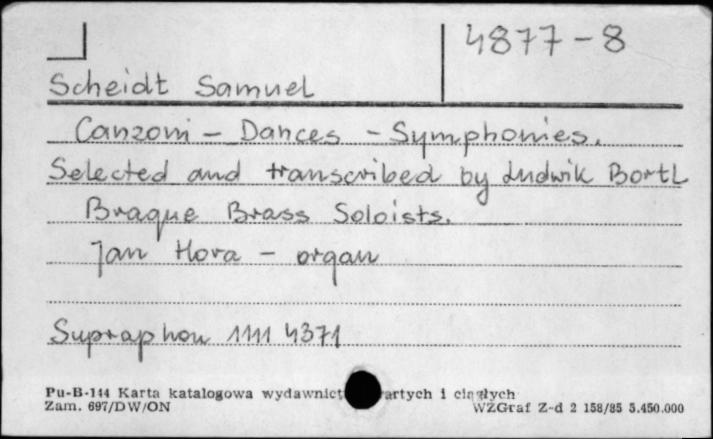 4877-8
Scheidt Samuel
Canzoni - Dances - Symphonies.
Selected and transcribed by Ludwik Bortl
Braque Brass Soloists.
Jan Hora - organ
Supraphon 1111 4371
Pu-B-144 Karta katalogowa wydawnict artych i ciągłych
Zam. 697/DW/ON
WZGraf Z-d 2 158/85 5.450.000